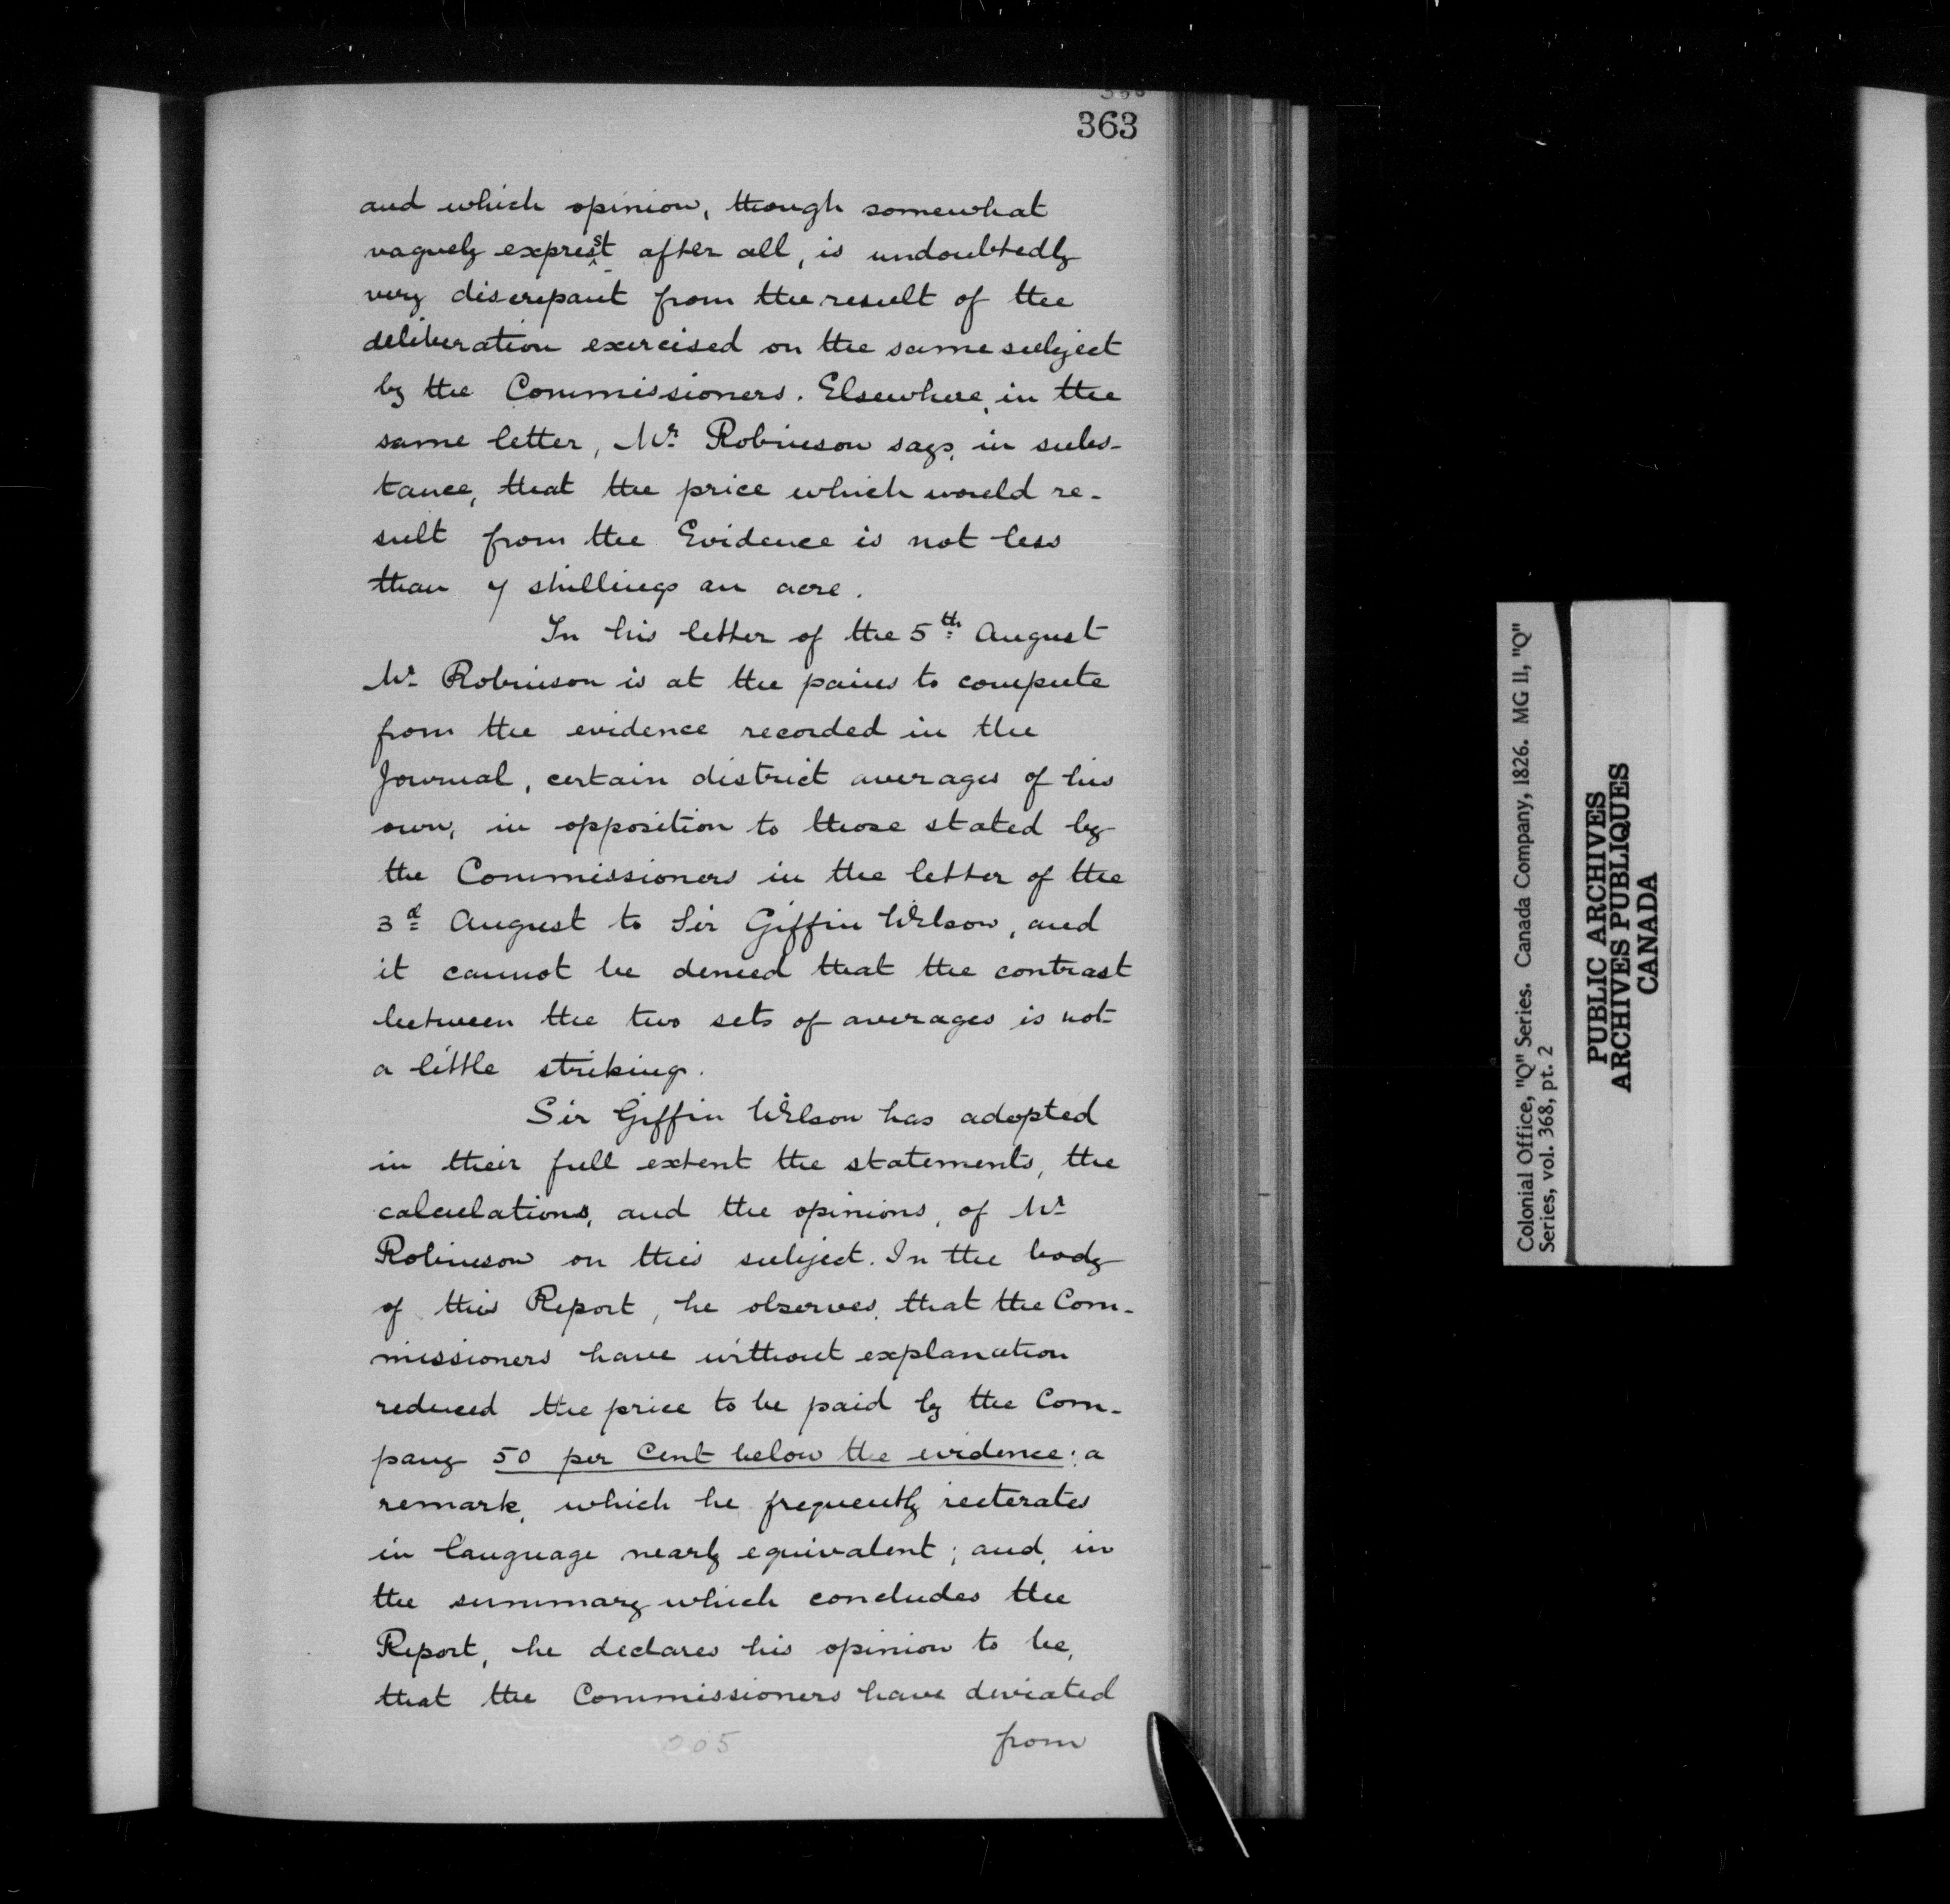 363
and which opinion, though somewhat
vaguely exprest after all, is undoubtedly
very discrepant from the result of the
deliberation exercised on the same subject
by the Commissioners. Elsewhere, in the
same letter, Mr. Robinson says, in subs-
tance, that the price which would re-
sult from the Evidence is not less
than 7 shillings an acre.
In his letter of the 5th August
Mr. Robinson is at the pains to compute
from the evidence recorded in the
Journal, certain district averages of his
own, in opposition to those stated by
the Commissioners in the letter of the
3d August to Sir Giffin Wilson, and
it cannot be denied that the contrast
between the two sets of averages is not
a little striking.
Sir Giffin Wilson has adopted
in their full extent the statements, the
calculations, and the opinions, of Mr.
Robinson on this subject. In the body
of this Report, he observes, that the Com-
missioners have without explanation
reduced the price to be paid by the Com-
pany 50 per Cent below the evidence; a
remark, which he frequently reiterates
in language nearly equivalent; and, in
the summary which concludes the
Report, he declares his opinion to be,
that the Commissioners have deviated
from
205
Colonial Office, "Q" Series. Canada Company, 1826. MG 11, "Q"
Series, vol. 368, pt. 2
PUBLIC ARCHIVES
ARCHIVES PUBLIQUES
CANADA